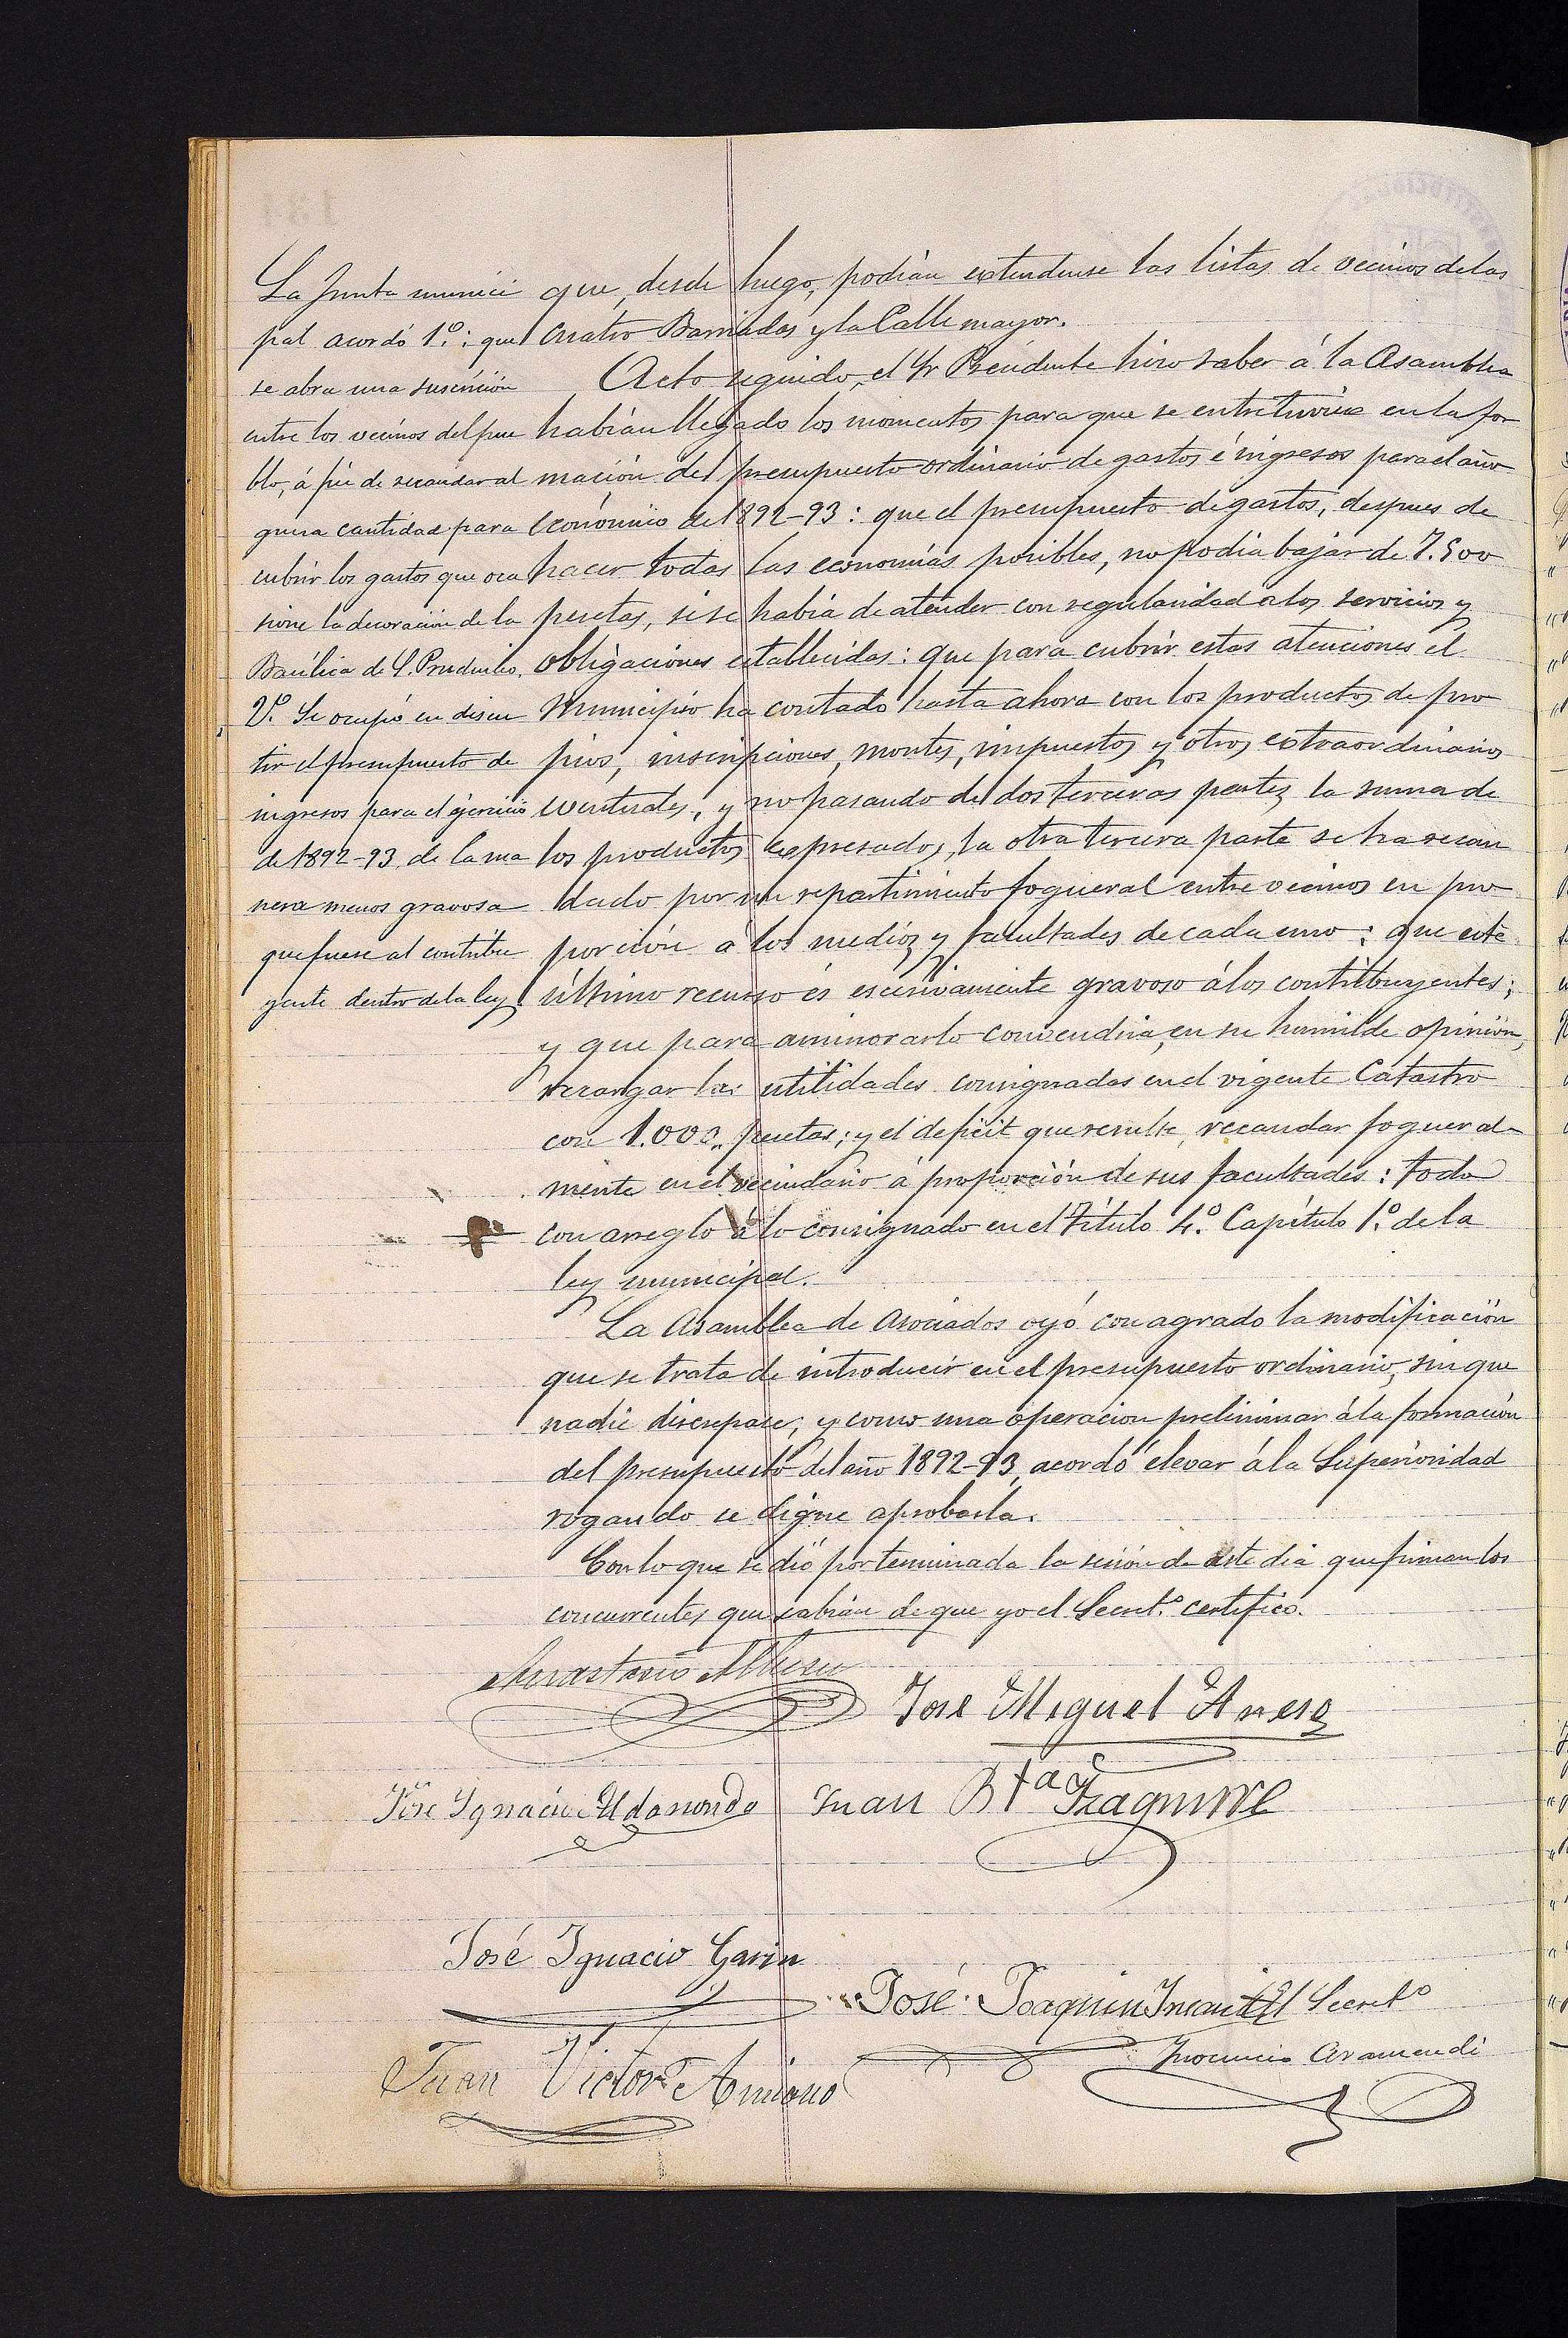 La Junta munici
pal acordó 1.º: que
se abra una suscrición
entre los vecinos del pue
blo, á fin de recaudar al
guna cantidad para
cubrir los gastos que oca
sione la decoración de la
Basílica de S. Prudencio.
2.º Se ocupó en discu
tir el presupuesto de
ingresos para el ejercicio
de 1892-93, de la ma
nera menos gravosa
que fuese al contribu
yente dentro de la ley.
que, desde luego, podían extenderse las listas de vecinos de las
cuatro Barriadas y la Calle mayor.
Acto seguido, el Sr Presidente hizo saber á la Asamblea
habían llegado los momentos para que se entretuviese en la for
mación del presupuesto ordinario de gastos é ingresos para el año
económico de 1892-93: que el presupuesto de gastos, despues de
hacer todas las economías posibles, no podia bajar de 7.500
pesetas, si se había de atender con regularidad a los servicios y
obligaciones establecidas: que para cubrir estas atenciones el
Municipio ha contado hasta ahora con los productos de pro
pios, inscripciones, montes, impuestos y otros extraordinarios
eventuales, y no pasando de dos terceras partes la suma de
los productos expresados, la otra tercera parte se ha recau
dado por un repartimiento fogueral entre vecinos en pro
porción á los medios y facultades de cada uno: que este
último recurso és escesivamente gravoso á los contribuyentes;
y que para aminorarlo convendria, en su humilde opinión,
recargar las utilidades consignadas en el vigente Catastro
con 1.000.. pesetas; y el deficit que resulte, recaudar fogueral-
mente en el vecindario á proporción de sus facultades: todo
con arreglo á lo consignado en el Título 4.º Capítulo 1.º de la
ley municipal.
La Asamblea de Asociados oyó con agrado la modificación
que se trata de introducir en el presupuesto ordinario, sin que
nadie discrepase; y como una operacion preliminar á la formación
del presupuesto del año 1892-93, acordó elevar á la Superioridad
rogando se digne aprobarla.
Con lo que se dió por terminada la sesión de este dia que firman los
concurrentes que sabían de que yo el Secret.º certifico.
Anastasio
José Miguel
José Ignacio Aldanondo
Juan Bta Yzaguirre
José Ignacio Garin
José Joaquin
El Secretº
Juan Victor Amiano
Inocencio Aramendi